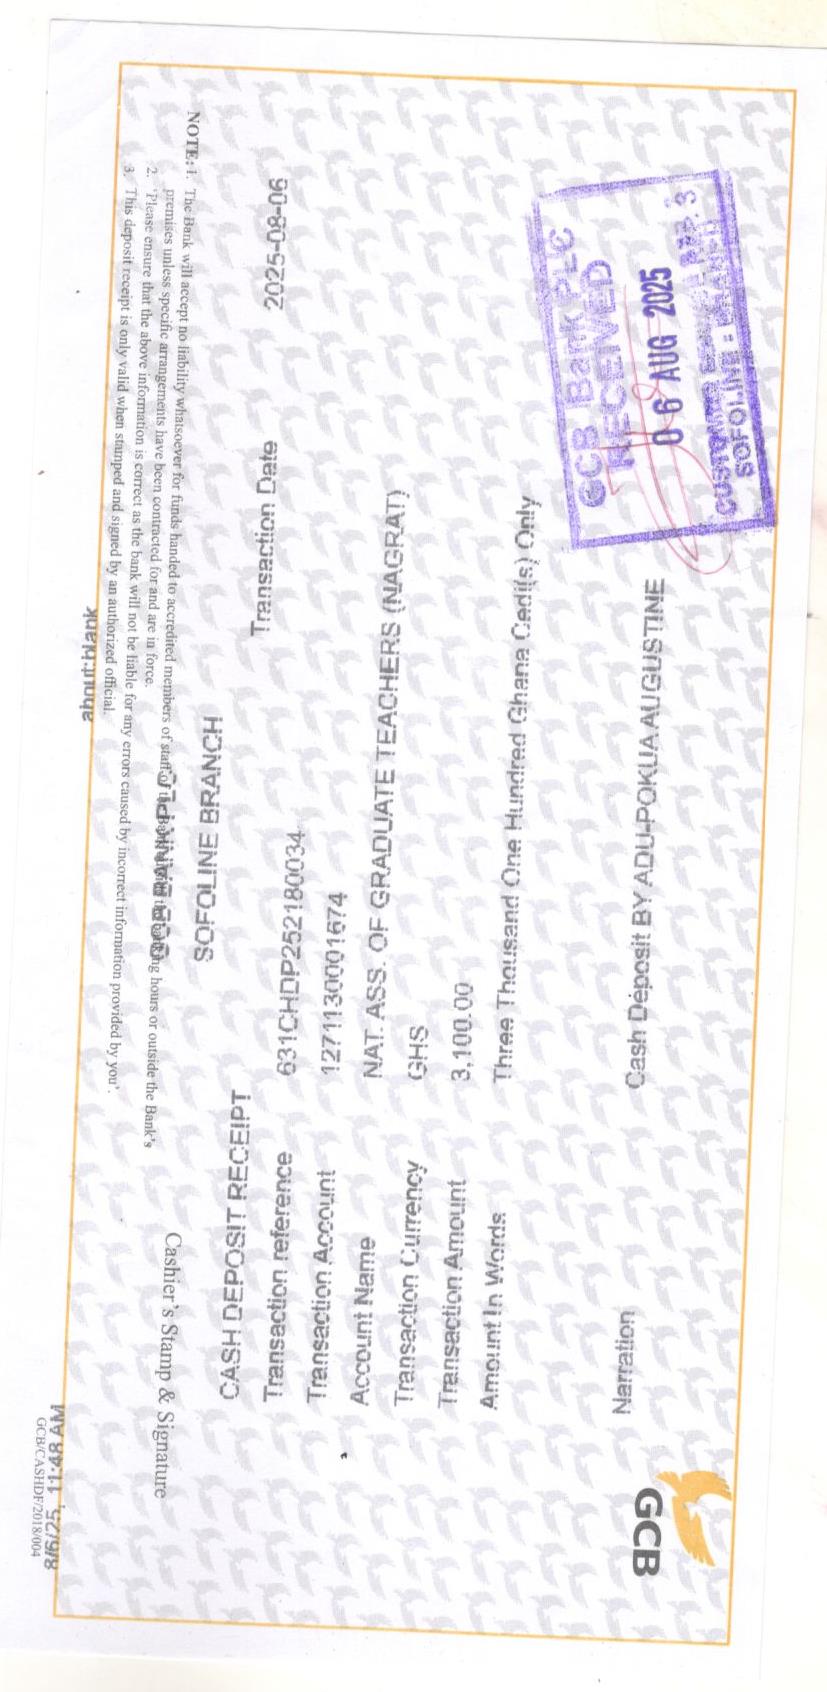 8/6/25, 11:48 AM
about:blank
CASH DEPOSIT RECEIPT SOFOLINE BRANCH
Transaction reference 631CHDP252180034 Transaction Date 2025-08-06
Transaction Account 1271130001674
Account Name NAT. ASS. OF GRADUATE TEACHERS (NAGRAT)
Transaction Currency GHS
Transaction Amount 3,100.00
Amount In Words Three Thousand One Hundred Ghana Cedi(s) Only
Narration Cash Deposit BY ADU-POKUA AUGUSTINE
GCB Bank PLC
RECEIVED
06 AUG 2025
CUSTOMER 3
SOFOLINE : BRANCH
GCB
Cashier's Stamp & Signature
NOTE: 1. The Bank will accept no liability whatsoever for funds handed to accredited members of staff of the Bank hours or outside the Bank's
premises unless specific arrangements have been contracted for and are in force.
2. 'Please ensure that the above information is correct as the bank will not be liable for any errors caused by incorrect information provided by you'.
3. This deposit receipt is only valid when stamped and signed by an authorized official.
GCB/CASHDF/2018/004